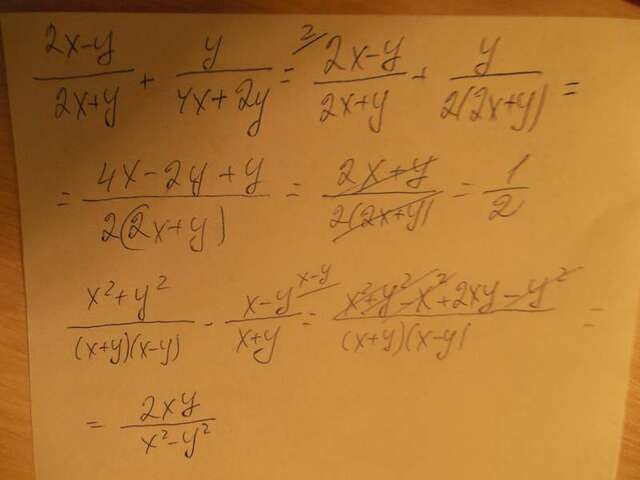 (2x-y)/(2x+y) + y/(4x+2y) = ²/ (2x-y)/(2x+y) + y/(2(2x+y)) =
= (4x-2y+y)/(2(2x+y)) = (2x+y)/(2(2x+y)) = 1/2
(x²+y²)/((x+y)(x-y)) - (x-y)/(x+y) ^(x-y) = (x²+y²-x²+2xy-y²)/((x+y)(x-y)) =
= 2xy/(x²-y²)